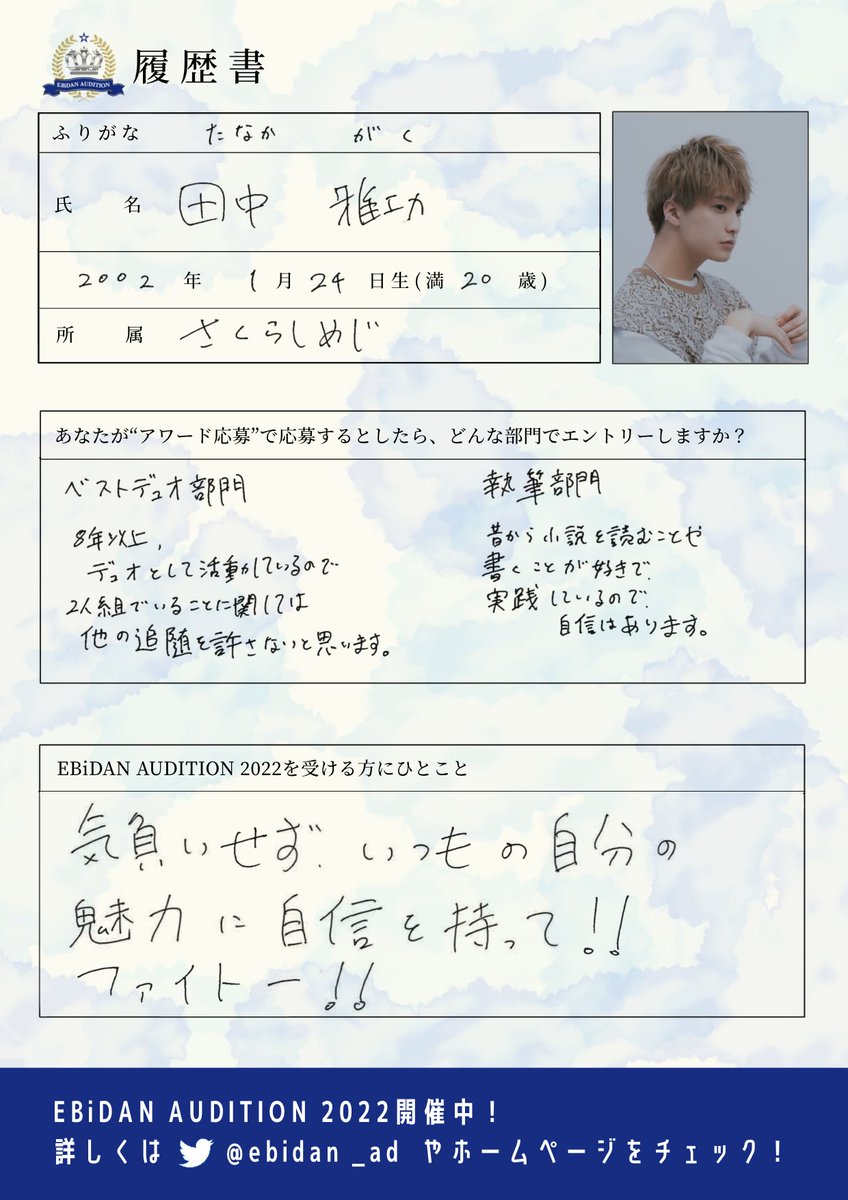 EBiDAN AUDITION
履歴書
ふりがな たなか がく
氏名 田中 雅功
2002年 1月24日生(満20歳)
所属 さくらしめじ
あなたが“アワード応募”で応募するとしたら、どんな部門でエントリーしますか?
ベストデュオ部門
8年以上、
デュオとして活動しているので
2人組でいることに関しては
他の追随を許さないと思います。
執筆部門
昔から小説を読むことや
書くことが好きで、
実践しているので、
自信はあります。
EBiDAN AUDITION 2022を受ける方にひとこと
気負いせず、いつもの自分の
魅力に自信を持って!!
ファイトー!!
EBiDAN AUDITION 2022開催中!
詳しくは @ebidan _ad やホームページをチェック!